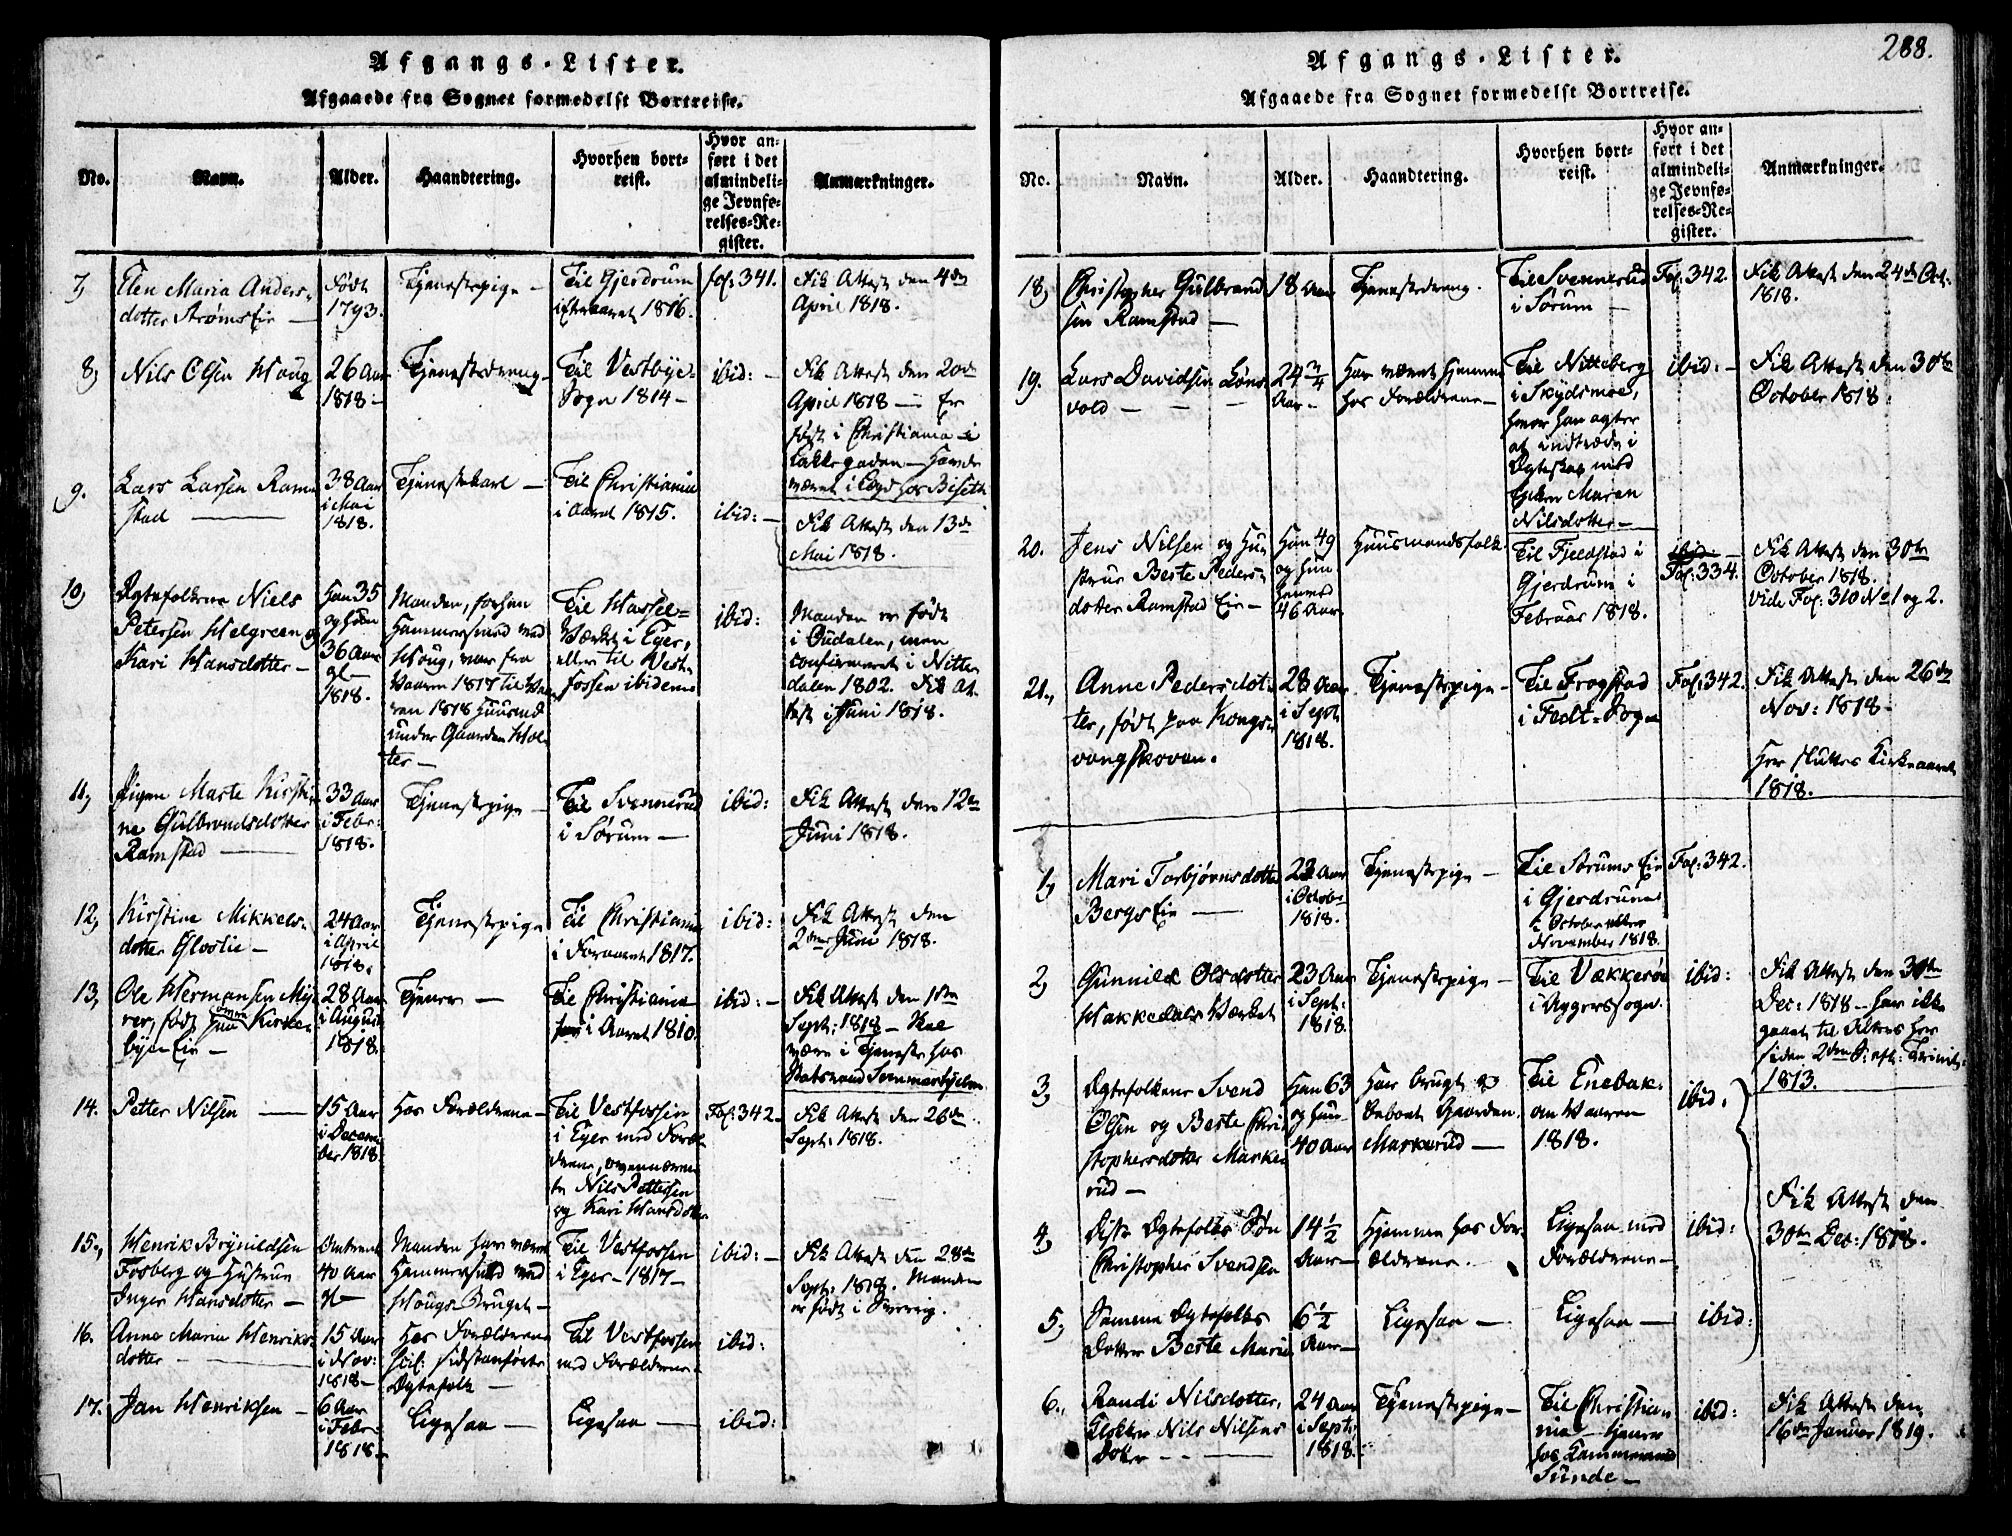 Afgangs-Lister.
Afgaaede fra Sognet formedelst Bortreise.
No.
Navn.
Alder.
Haandtering.
Hvorhen bort-
reist.
Hvor an-
ført i det
almindeli-
ge Jevnfø-
relses-Re-
gister.
Anmærkninger.
7,
Elen Maria Anders-
dotter Strøms Eie —
Født
1793.
Tjenestepige —
Til Gjerdrum
i Efteraaret 1816.
Fol: 341.
Fik Attest den 4de
April 1818.
8,
Nils Olsen Houg
26 Aar
1818 —
Tjenestedreng —
Til Vestbye-
Sogn 1814 —
ibid: —
Fik Attest den 20de
April 1818 — Er
født i Christiania i
Lakkegaden — Havde
været i Lægd hos Biseth
9.
Lars Larsen Ram-
stad —
38 Aar
i Mai
1818.
Tjenestekarl —
Til Christiania
i Aaret 1815.
ibid: —
Fik Attest den 13de
Mai 1818.
10,
Ægtefolkene Niels
Petersen Helgreen og
Kari Hansdotter —
Han 35
og Hun
36 Aar
gl —
1818.
Manden, forhen
Hammersmed ved
Houg, var fra
Vaaren 1817 til Vaa-
ren 1818 Huusmd
under Gaarden Hol-
ter —
Til Hassel-
Værket i Eger,
eller til Vest-
fossen ibidem
ibid:
Manden er født
i Oudalen, men
confirmeret i Nitte-
dalen 1802. Fik At-
test i Juni 1818.
11,
Pigen Marte Kirsti-
ne Gulbrandsdotter
Ramstad —
33 Aar
i Febr:
1818.
Tjenestepige —
Til Svennerud
i Sørum —
ibid:
Fik Attest den 12te
Juni 1818.
12,
Kirstine Mikkels-
dotter Glosli —
24 Aar
i April
1818.
Tjenestepige
Til Christiania
i Foraaret 1817.
ibid:
Fik Attest den
2den Juni 1818.
13,
Ole Hermansen My-
rer, født paa Kirke-
byeEie —
28 Aar
i August
1818.
Tjener —
Til Christiania
i Aaret 1810.
ibid: —
Fik Attest den 1ste
Sept: 1818 — Skal
være i Tjeneste hos
Statsraad Sommerhjelm
14.
Petter Nilsen —
15 Aar
i Decem-
ber 1818
Hos Forældrene —
Til Vestfossen
i Eger med Foræl-
drene, ovennævn-
te Nils Pettersen
og Kari Hansdotter
Fol: 342 —
Fik Attest den 26de
Sept: 1818.
15.,
Henrik Brynildsen
Fosberg og Hustrue
Inger Hansdotter —
Omtrent
40 Aar
gl —
Manden har været
Hammersmed ved
Hougs Bruget —
Til Vestfossen
i Eger — 1817 —
ibid: —
Fik Attest den 28de
Sept: 1818. Manden
er født i Sverrig.
16.
Anne Maria Henriks-
dotter —
15 Aar
i Nov:
1818 —
Hos Forældrene
scil: sidstanførte
Ægtefolk —
Til Vestfossen
med Forældrene —
ibid:
17.
Jan Henriksen —
6 Aar
i Febr:
1818 —
Ligesaa —
Ligesaa —
ibid:
288.
Afgangs-Lister.
Afgaaede fra Sognet formedelst Bortreise.
No.
Navn.
Alder.
Haandtering.
Hvorhen bort-
reist.
Hvor an-
ført i det
almindeli-
ge Jevnfø-
relses-Re-
gister.
Anmærkninger.
18,
Christopher Gulbrand-
sen Ramstad —
18 Aar
Tjenestedreng.
Til Svennerud
i Sørum —
Fol: 342.
Fik Attest den 24de Oct:
1818.
19.
Lars Davidsen Løns-
vold — — —
24 3/4
Aar —
Har været hjemme
hos Forældrene —
Til Nitteberg
i Skydsmoe,
hvor han agter
at indtræde i
Ægteskab med
Enken Maren
Nilsdotter —
ibid: —
Fik Attest den 30te
October 1818.
20.
Jens Nilsen og Hu-
strue Berte Peders-
dotter Ramstad Eie —
Han 49
og Hun
henved
46 Aar
Huusmandsfolk.
Til Fjeldstad i
Gjerdrum i
Februar 1818.
ibid: —
Fol: 334.
Fik Attest den 30te
October 1818.
vide Fol: 310 No 1 og 2.
21.,
Anne Pedersdot-
ter, født paa Kongs-
vangskoven.
28 Aar
i Sept
1818.
Tjenestepige —
Til Frogstad
i Fedt-Sogn
Fol: 342.
Fik Attest den 26de
Nov: 1818 —
Her sluttes Kirkeaaret
1818.
1,
Mari Torbjørnsdotter
BergsEie —
22 Aar
i Octobr
1818.
Tjenestepige —
Til Strums Eie
i Gjerdrum
i October eller
November 1818.
Fol: 342.
2,
Gunnild Olsdotter
Hakkedals Værket
23 Aar
i Sept:
1818.
Tjenestepige —
Til Vækkerøe
i Aggers sogn.
ibid:
Fik Attest den 30te
Dec: 1818 — har ikke
gaaet til Alters her
siden 2den S: eft: Trinit:
1813.
3,
Ægtefolkene Svend
Olsen og Berte Chri-
stophersdotter Marke-
rud —
Han 63
og Hun
40 Aar
Har brugt og
beboet Gaarden
Markerud —
Til Enebak-
om Vaaren
1818.
ibid.
4,
Disse Ægtefolks Søn
Christopher Svendsen
14 1/2
Aar —
Hjemme hos For-
ældrene.
Ligesaa med
Forældrene —
ibid:
Fik Attest den
30te Dec: 1818.
5,
Samme Ægtefolks
Dotter Berte Marie
6 1/2
Aar —
Ligesaa —
Ligesaa —
ibid:
6.,
Randi Nilsdotter,
Klokker Nils Nilsens
Dotter — — —
24 Aar
i Sept:
1818.
Tjenestepige —
Til Christia-
nia — tjener
hos Kammerraad
Sunde —
ibid:
Fik Attest den
16de Januar 1819.